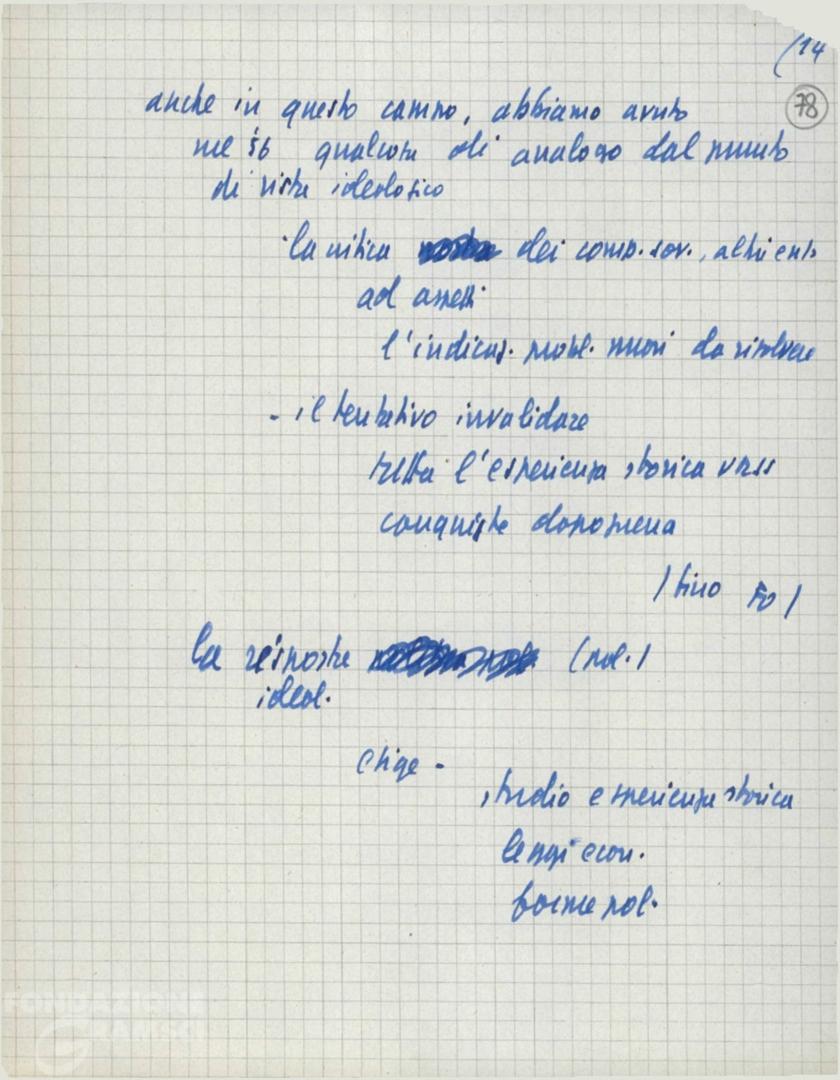 (14
78
anche in questo campo, abbiamo avuto
nel '56 qualcosa di analogo dal punto
di vista ideologico
la critica dei comp. sov., altrienti
ad aspetti
l'indicaz. probl. nuovi da risolvere
- il tentativo invalidare
tutta l'esperienza storica URSS
conquiste dopoguerra
/ fino
la risposta (pol./
ideol.
esige -
studio esperienza storica
leggi econ.
forme pol.
FONDAZIONE
GRAMSCI